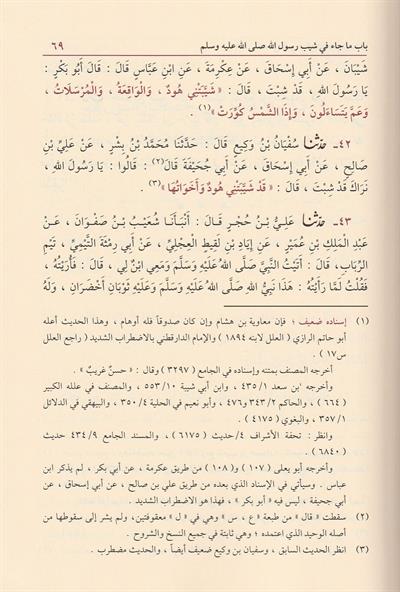 باب ما جاء في شيب رسول الله صلى الله عليه وسلم ٦٩
شَيْبَانَ ، عَنْ أَبِي إِسْحَاقَ ، عَنْ عِكْرِمَةَ ، عَنِ ابْنِ عَبَّاسٍ قَالَ : قَالَ أَبُو بَكْرٍ :
يَا رَسُولَ اللهِ ، قَدْ شِبْتَ ، قَالَ : « شَيَّبَتْنِي هُودٌ ، وَالْوَاقِعَةُ ، وَالْمُرْسَلَاتُ ،
وَعَمَّ يَتَسَاءَلُونَ ، وَإِذَا الشَّمْسُ كُوِّرَتْ »(١) .
٤٢- حَدَّثَنَا سُفْيَانُ بْنُ وَكِيعٍ قَالَ : حَدَّثَنَا مُحَمَّدُ بْنُ بِشْرٍ ، عَنْ عَلِيِّ بْنِ
صَالِحٍ ، عَنْ أَبِي إِسْحَاقَ ، عَنْ أَبِي جُحَيْفَةَ قَالَ(٢) : قَالُوا : يَا رَسُولَ اللهِ ،
نَرَاكَ قَدْ شِبْتَ ، قَالَ : « قَدْ شَيَّبَتْنِي هُودٌ وَأَخَوَاتُهَا »(٣) .
٤٣- حَدَّثَنَا عَلِيُّ بْنُ حُجْرٍ قَالَ : أَنْبَأَنَا شُعَيْبُ بْنُ صَفْوَانَ ، عَنْ
عَبْدِ الْمَلِكِ بْنِ عُمَيْرٍ ، عَنْ إِيَادِ بْنِ لَقِيطٍ الْعِجْلِيِّ ، عَنْ أَبِي رِمْثَةَ التَّيْمِيِّ ، تَيْمِ
الرِّبَابِ، قَالَ : أَتَيْتُ النَّبِيَّ صَلَّى اللهُ عَلَيْهِ وَسَلَّمَ وَمَعِي ابْنٌ لِي ، قَالَ : فَأُرِيتُهُ ،
فَقُلْتُ لَمَّا رَأَيْتُهُ : هَذَا نَبِيُّ اللهِ صَلَّى اللهُ عَلَيْهِ وَسَلَّمَ وَعَلَيْهِ ثَوْبَانِ أَخْضَرَانِ ، وَلَهُ
(١) إسناده ضعيف ؛ فإن معاوية بن هشام وإن كان صدوقاً فله أوهام ، وهذا الحديث أعله
أبو حاتم الرازي ( العلل لابنه ١٨٩٤ ) والإمام الدارقطني بالاضطراب الشديد ( راجع العلل
س١٧ ) .
أخرجه المصنف بمتنه وإسناده في الجامع ( ٣٢٩٧ ) وقال : « حسنٌ غريبٌ » .
وأخرجه ابن سعد ٤٣٥/١ ، وابن أبي شيبة ٥٥٣/١٠ ، والمصنف في علله الكبير
( ٦٦٤ ) ، والحاكم ٣٤٣/٢ و٤٧٦ ، وأبو نعيم في الحلية ٣٥٠/٤ ، والبيهقي في الدلائل
٣٥٧/١ ، والبغوي ( ٤١٧٥ ) .
وانظر : تحفة الأشراف ٤/حديث ( ٦١٧٥ ) ، والمسند الجامع ٤٣٤/٩ حديث
( ٦٨٤٠ ) .
وأخرجه أبو يعلى ( ١٠٧ ) و( ١٠٨ ) من طريق عكرمة ، عن أبي بكر ، لم يذكر ابن
عباس . وسيأتي في الإسناد الذي بعده من طريق علي بن صالح ، عن أبي إسحاق ، عن
أبي جحيفة ، ليس فيه « أبو بكر » ، فهذا هو الاضطراب الشديد .
(٢) سقطت « قال » من طبعة ( ع ، س ) وهي في « ل » معقوفتين، ولم يشر إلى سقوطها من
أصله الوحيد الذي اعتمده ؛ وهي ثابتة في جميع النسخ والشروح .
(٣) انظر الحديث السابق ، وسفيان بن وكيع ضعيف أيضاً ، والحديث مضطرب .